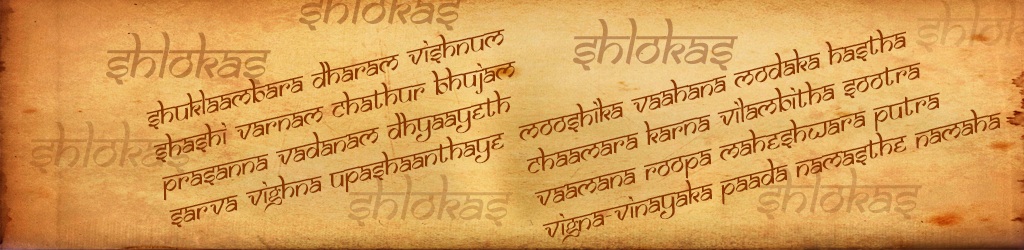 shlokas
shlokas
shlokas
shlokas
shuklaambara dharam vishnum
shashi varnam chathur bhujam
prasanna vadanam dhyaayeth
sarva vighna upashaanthaye
mooshika vaahana modaka hastha
chaamara karna vilambitha sootra
vaamana roopa maheshwara putra
vigna-vinayaka paada namasthe namaha
shlokas
shlokas